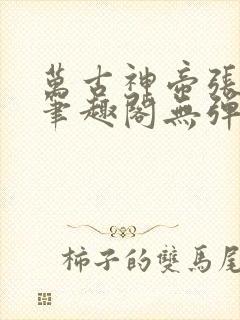 萬古神帝張
筆趣閣無彈
柿子的雙馬尾